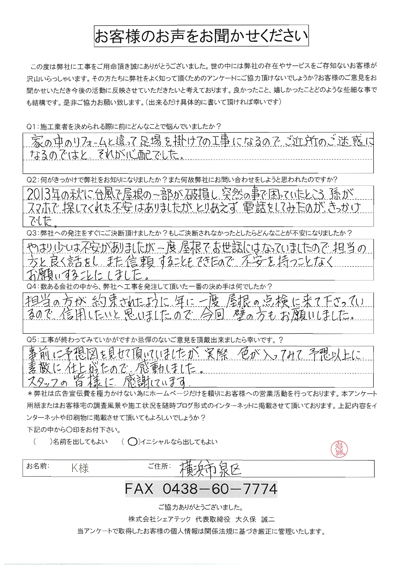 お客様のお声をお聞かせください
この度は弊社に工事をご用命頂き誠にありがとうございました。世の中には弊社の存在やサービスをご存知ないお客様が
沢山いらっしゃいます。その方たちに弊社をよく知って頂くためのアンケートにご協力頂けないでしょうか?お客様のご意見をお
聞かせいただき今後の活動に反映させていただきたいと考えております。良かったこと、嬉しかったことどのような些細な事で
も結構です。是非ご協力お願い致します。(出来るだけ具体的に書いて頂ければ幸いです)
Q1:施工業者を決められる際に前にどんなことで悩んでいましたか?
家の中のリフォームと違って足場を掛けての工事になるので、ご近所のご迷惑に
なるのではと、それが心配でした。
Q2:何がきっかけで弊社をお知りになりましたか?また何故弊社にお問い合わせをしようと思われたのですか?
2013年の秋に台風で屋根の一部が破損し、突然の事で困っていたところ、孫が
スマホで探してくれ不安はありましたが、とりあえず電話をしてみたのがきっかけ
でした。
Q3:弊社への発注をすぐにご決断頂けましたか?もしご決断されなかったとしたらどんなことが不安になりましたか?
やはり少しは不安がありましたが一度屋根でお世話にはなっていましたので、担当の
方と良く話をし、また信頼することもできたので、不安を持つことなく
お願いすることにしました。
Q4:数ある会社の中から、弊社へ工事を発注して頂いた一番の決め手は何でしたか?
担当の方が約束されたように、年に一度屋根の点検に来て下さってい
るので、信用したいと思いましたので、今回壁の方もお願いしました。
Q5:工事が終わってみていかがですか忌憚のないご意見を頂戴出来ましたら幸いです。?
事前に予想図を見せて頂いていましたが、実際色が入ってみて予想以上に
素敵に仕上がたので、感動しました。
スタッフの皆様に感謝しています
*弊社は広告宣伝費を極力かけない為にホームページだけを頼りにお客様への営業活動を行っております。本アンケート
用紙またはお客様宅の調査風景や施工状況を随時ブログ形式のインターネットに掲載させて頂いております。上記内容をイ
ンターネットや印刷物に掲載させて頂いてもよろしいでしょうか?
下記の中から○印をお付下さい。
( )名前を出してもよい (○)イニシャルなら出してもよい
お名前: K様 ご住所: 横浜市泉区
FAX 0438-60-7774
ご協力ありがとうございました。
株式会社シェアテック 代表取締役 大久保 誠二
当アンケートで取得したお客様の個人情報は関係法規に基づき厳正に管理いたします。